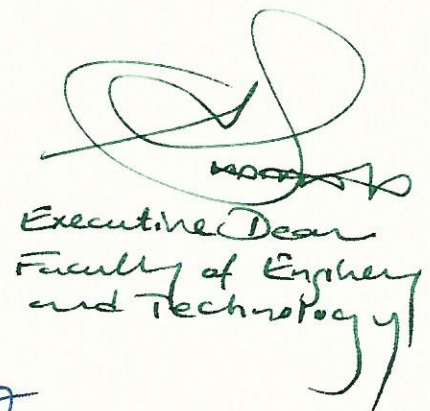 Executive Dean
Faculty of Enginery
and Technology